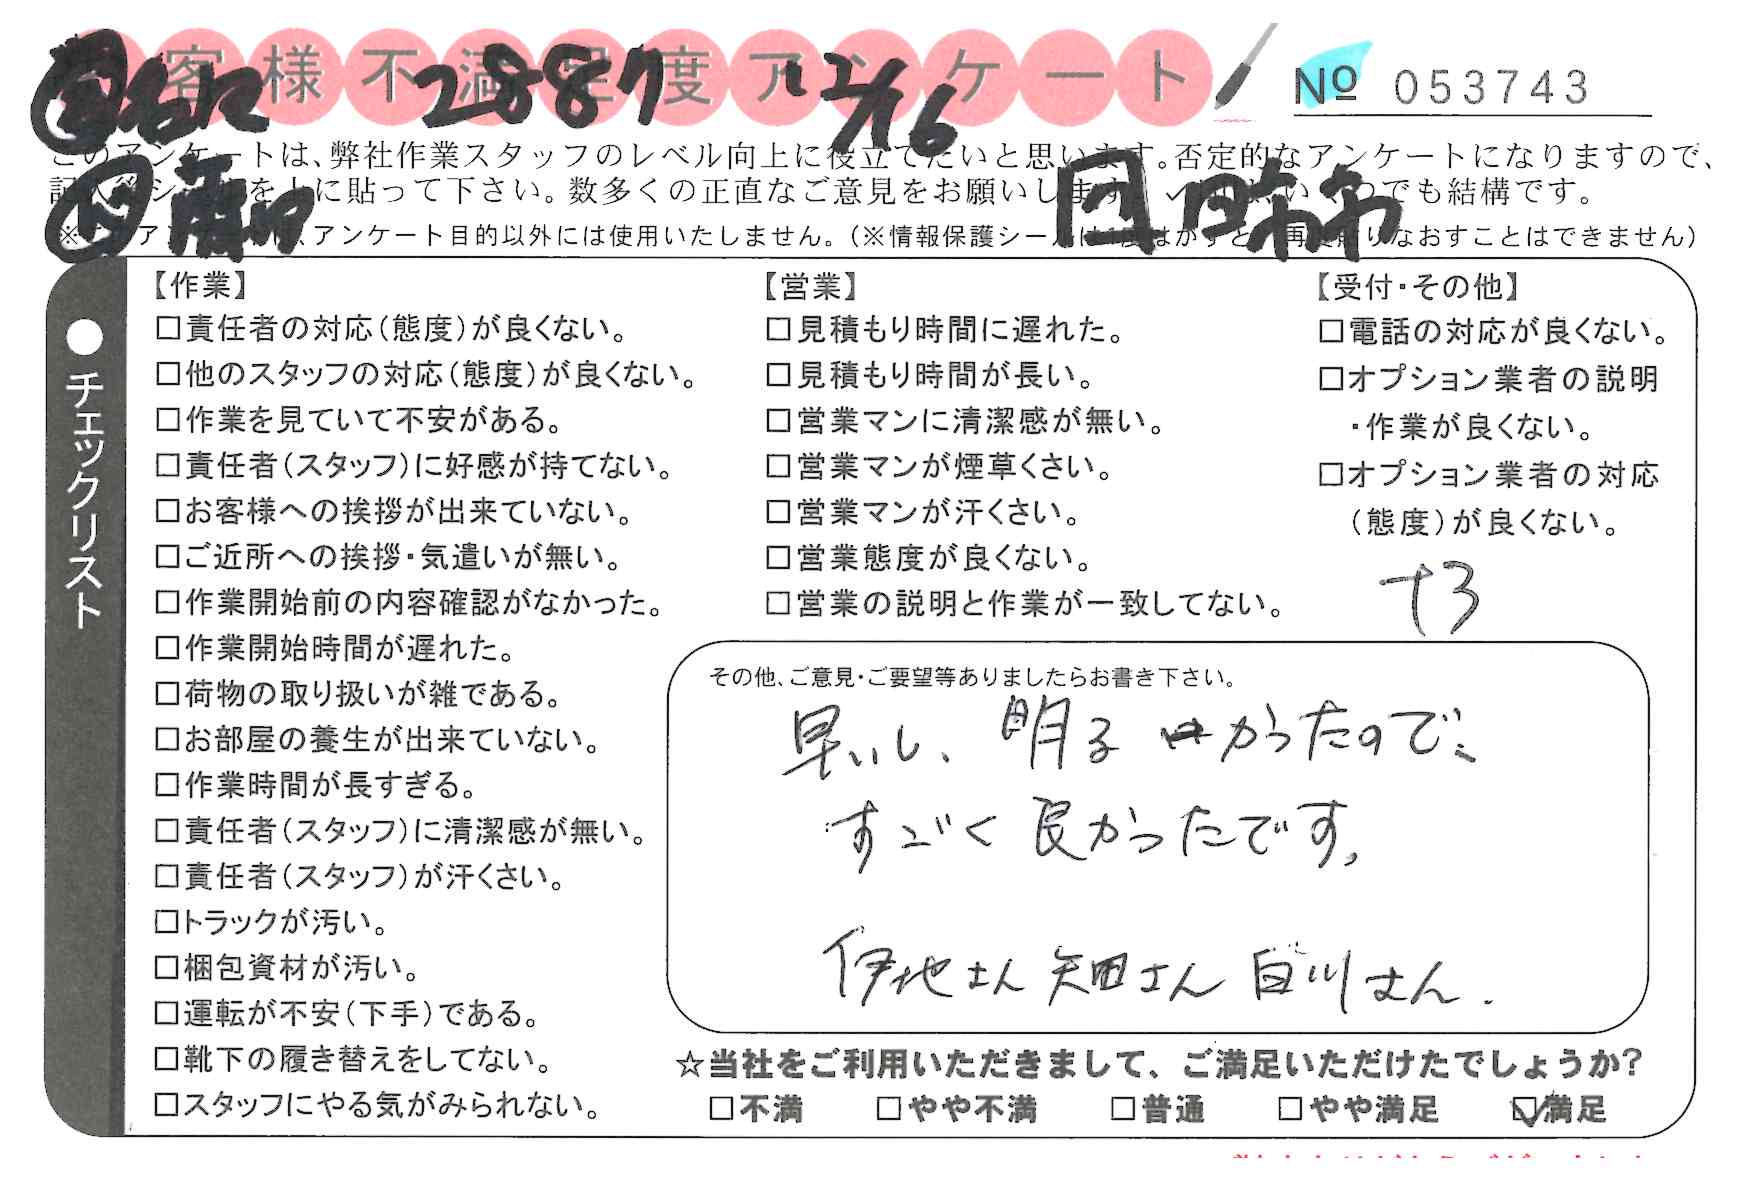 客様不満足度アンケート
2887
12/16
No 053743
このアンケートは、弊社作業スタッフのレベル向上に役立てたいと思います。否定的なアンケートになりますので、
を上に貼って下さい。数多くの正直なご意見をお願いします でも結構です。
アンケート目的以外には使用いたしません。(※情報保護シールは1度はがすと、再度貼りなおすことはできません)
●チェックリスト
【作業】
□責任者の対応(態度)が良くない。
□他のスタッフの対応(態度)が良くない。
□作業を見ていて不安がある。
□責任者(スタッフ)に好感が持てない。
□お客様への挨拶が出来ていない。
□ご近所への挨拶・気遣いが無い。
□作業開始前の内容確認がなかった。
□作業開始時間が遅れた。
□荷物の取り扱いが雑である。
□お部屋の養生が出来ていない。
□作業時間が長すぎる。
□責任者(スタッフ)に清潔感が無い。
□責任者(スタッフ)が汗くさい。
□トラックが汚い。
□梱包資材が汚い。
□運転が不安(下手)である。
□靴下の履き替えをしてない。
□スタッフにやる気がみられない。
【営業】
□見積もり時間に遅れた。
□見積もり時間が長い。
□営業マンに清潔感が無い。
□営業マンが煙草くさい。
□営業マンが汗くさい。
□営業態度が良くない。
□営業の説明と作業が一致してない。
【受付・その他】
□電話の対応が良くない。
□オプション業者の説明
・作業が良くない。
□オプション業者の対応
(態度)が良くない。
+3
その他、ご意見・ご要望等ありましたらお書き下さい。
早いし、明るかったので、
すごく良かったです。
伊地さん 矢田さん 白川さん.
☆当社をご利用いただきまして、ご満足いただけたでしょうか?
□不満 □やや不満 □普通 □やや満足 ☑満足